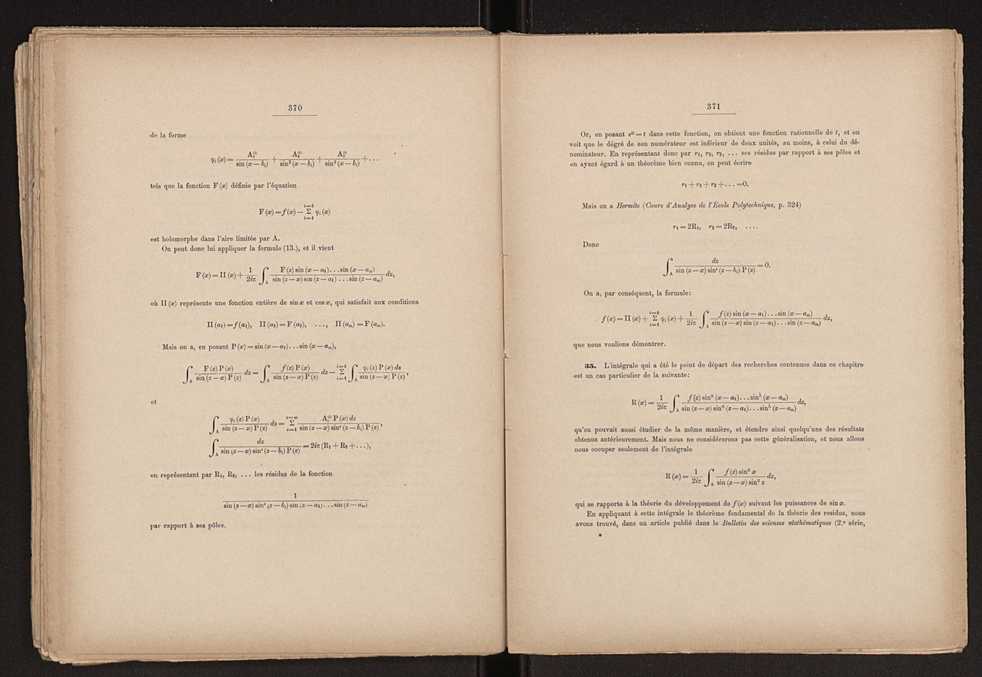 370
de la forme
φᵢ (x) = A₁⁽ⁱ⁾ / sin (x — bᵢ) + A₂⁽ⁱ⁾ / sin² (x — bᵢ) + A₃⁽ⁱ⁾ / sin³ (x — bᵢ) + . . .
tels que la fonction F (x) définie par l'équation
F (x) = f (x) — Σ φᵢ (x)
est holomorphe dans l'aire limitée par A.
On peut donc lui appliquer la formule (13.), et il vient
F (x) = Π (x) + 1 / 2iπ ∫ F (z) sin (x — a₁). . .sin (x — aₘ) / sin (z — x) sin (z — a₁) . . .sin (z — aₘ) dz,
où Π (x) représente une fonction entière de sin x et cos x, qui satisfait aux conditions
Π (a₁) = f (a₁), Π (a₂) = F (a₂), . . ., Π (aₘ) = F (aₘ).
Mais on a, en posant P (x) = sin (x — a₁). . .sin (x — aₘ),
∫ F (z) P (x) / sin (z — x) P (z) dz = ∫ f (z) P (x) / sin (z — x) P (z) dz — Σ ∫ φᵢ (z) P (x) dz / sin (z — x) P (z) ,
et
∫ φᵢ (z) P (x) / sin (z — x) P (z) dz = Σ ∫ P (x) dz / sin (z — x) sin (z — bᵢ) P (z) ,
∫ dz / sin (z — x) sin (z — bᵢ) P (z) = 2iπ (R₁ + R₂ + . . .),
en représentant par R₁, R₂, . . . les résidus de la fonction
1 / sin (z — x) sin (z — bᵢ) sin (z — a₁). . .sin (z — aₘ)
par rapport à ses pôles.
371
Or, en posant = t dans cette fonction, on obtient une fonction rationnelle de t, et on
voit que le dégré de son numérateur est inférieur de deux unités, au moins, à celui du dé-
nominateur. En représentant donc par r₁, r₂, r₃, . . . ses résidus par rapport à ses pôles et
en ayant égard à un théorème bien connu, on peut écrire
r₁ + r₂ + r₃ + . . . = 0.
Mais on a Hermite (Cours d'Analyse de l'École Polytechnique, p. 324)
r₁ = 2R₁, r₂ = 2R₂, . . . .
Donc
∫ dz / sin (z — x) sin (z — bᵢ) P (z) = 0.
On a, par conséquent, la formule:
f (x) = Π (x) + Σ φᵢ (x) + 1 / 2iπ ∫ f (z) sin (x — a₁). . .sin (x — aₘ) / sin (z — x) sin (z — a₁). . .sin (z — aₘ) dz,
que nous voulions démontrer.
35. L'intégrale qui a été le point de départ des recherches contenues dans ce chapitre
est un cas particulier de la suivante:
R (x) = 1 / 2iπ ∫ f (z) sin (x — a₁). . .sin (x — aₘ) / sin (z — x) sin (z — a₁). . .sin (z — aₘ) dz,
qu'on pouvait aussi étudier de la même manière, et étendre ainsi quelqu'uns des résultats
obtenus antérieurement. Mais nous ne considérerons pas cette généralisation, et nous allons
nous occuper seulement de l'intégrale
R (x) = 1 / 2iπ ∫ f (z) sinⁿ x / sin (z — x) sinⁿ z dz,
qui se rapporte à la théorie du développement de f (x) suivant les puissances de sin x.
En appliquant à cette intégrale le théorème fondamental de la théorie des residus, nous
avons trouvé, dans un article publié dans le Bulletin des sciences mathématiques (2.ᵉ série,
*